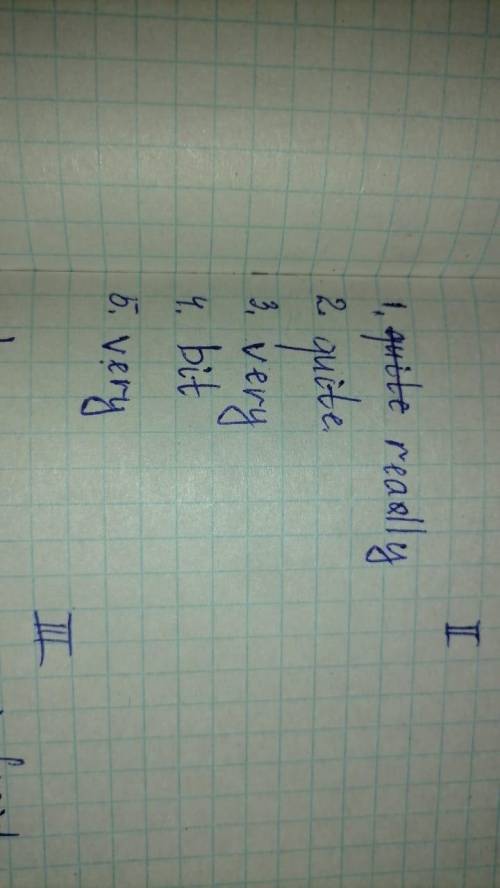 II
1. ~~quite~~ really
2. quite.
3. very
4. bit
5. very
III